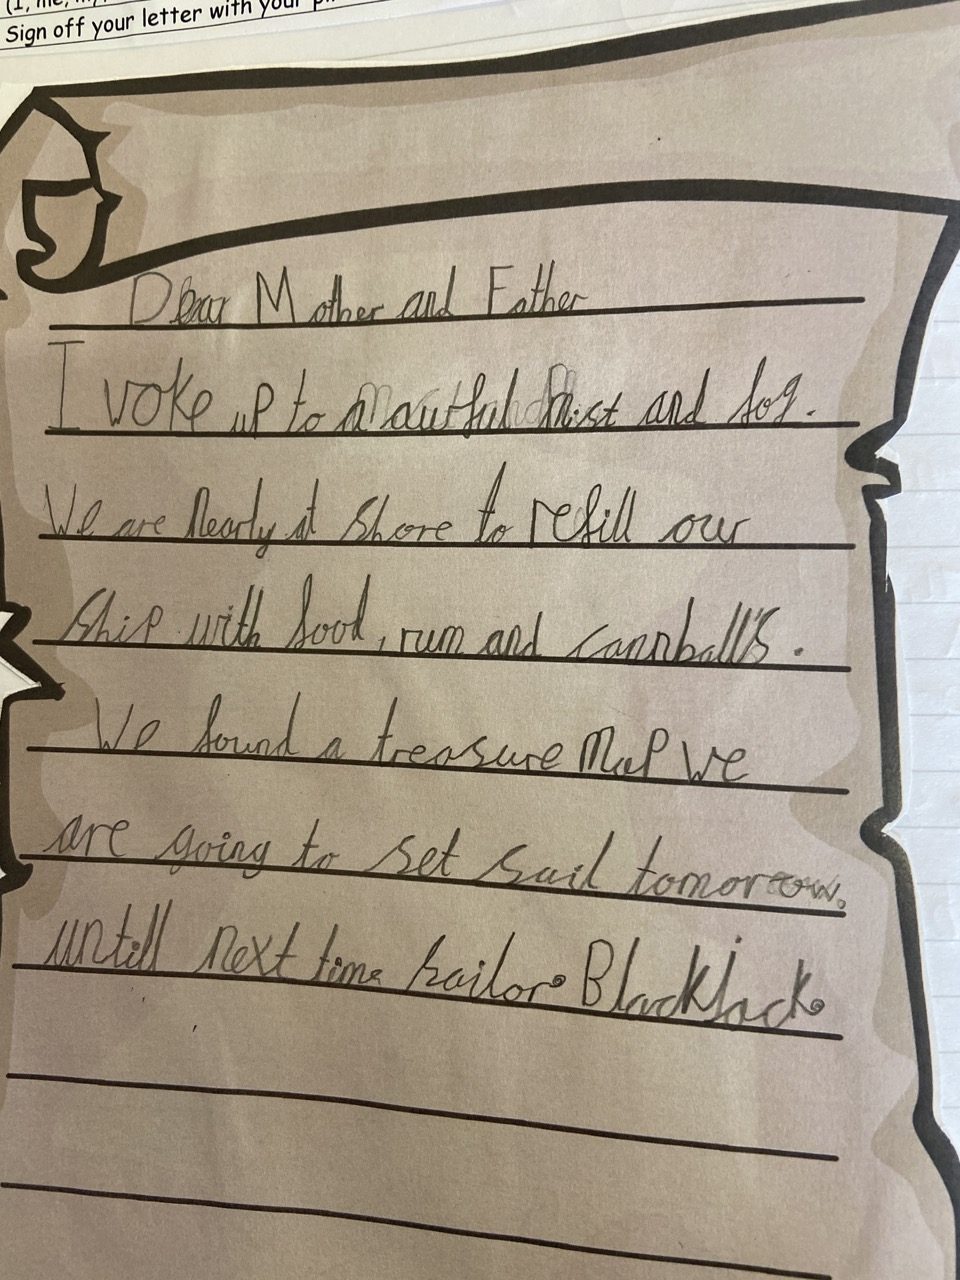 (I, me, my,
Sign off your letter with your pi
Dear Mother and Father
I woke up to a awtful mist and fog.
We are Nearly at Shore to refill our
Ship with food, rum and cannball's.
We found a treasure Map We
are going to set sail tomorrow.
untill next time sailor. BlackJack.